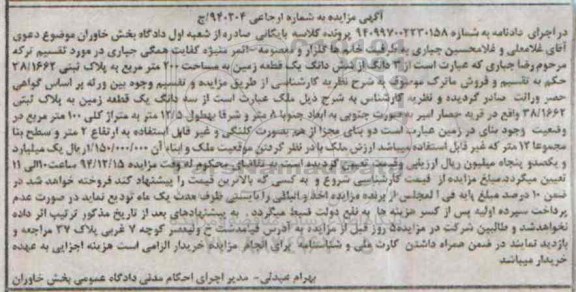 آگهی مزایده به شماره ارجاعی ۹۴۰۳۰۴/ج
در اجرای دادنامه به شماره ۹۴۰۹۹۷۰۰۲۲۳۰۱۵۸ پرونده کلاسه بایگانی صادره از شعبه اول دادگاه بخش خاوران موضوع دعوی
آقای غلامعلی و غلامحسین جباری به طرفیت خانم ها گلزار و معصومه کفایت همگی جباری در مورد تقسیم ترکه
مرحوم رضا جباری که عبارت است از ۳ دانگ از شش دانگ یک قطعه زمین به مساحت ۲۰۰ متر مربع به پلاک ثبتی ۳۸/۱۶۶۲
حکم به تقسیم و فروش ماترک موصوف به شرح نظریه کارشناسی از طریق مزایده و تقسیم وجوه بین ورثه بر اساس گواهی
حصر وراثت صادر گردیده و نظریه کارشناسی به شرح ذیل ملک عبارت است از سه دانگ یک قطعه زمین به پلاک ثبتی
۳۸/۱۶۶۲ واقع در قریه حصار امیر به صورت جنوبی به ابعاد جنوبا ۸ متر و شرقا بطول ۱۲/۵ متر به متراژ کلی ۱۰۰ متر مربع در
وضعیت وجود بنای در زمین عبارت است دو بنای مجزا از هم بصورت کلنگی و غیر قابل استفاده به ارتفاع ۲ متر و سطح بنا
مجموعا ۱۲ متر که غیر قابل استفاده میباشد ارزش ملک با در نظر گردن موقعیت ملک و بناء آن ۱/۱۵۰/۰۰۰/۰۰۰ ریال یک میلیارد
و یکصدو پنجاه میلیون ریال ارزیابی وقیمت تعیین گردیده است به تقاضای محکوم له وقت مزایده ۹۴/۱۲/۱۵ ساعت ۱۰ الی ۱۱
تعیین میگردد مبلغ مزایده از قیمت کارشناسی شروع و به کسی که بالاترین قیمت را پیشنهاد کند فروخته خواهد شد در
ضمن ۱۰ درصد مبلغ پایه فی المجلس از برنده مزایده اخذ و الباقی را بایستی ظرف مدت یک ماه تودیع نماید در صورت عدم
پرداخت سپرده اولیه پس از کسر هزینه ها به نفع دولت ضبط میگردد. به پیشنهادهای بعد از تاریخ مذکور ترتیب اثر داده
نخواهدشد و طالبین شرکت در مزایده ۵ روز قبل از مزایده به آدرس قیامدشت خ ولیعصر کوچه ۷ غربی پلاک ۲۷ مراجعه و
بازدید نمایند در ضمن همراه داشتن کارت ملی و شناسنامه برای انجام مزایده خریدار الزامی است هزینه اجرایی به عهده
خریدار میباشد
بهرام عبدلی- مدیر اجرای احکام مدنی دادگاه عمومی بخش خاوران